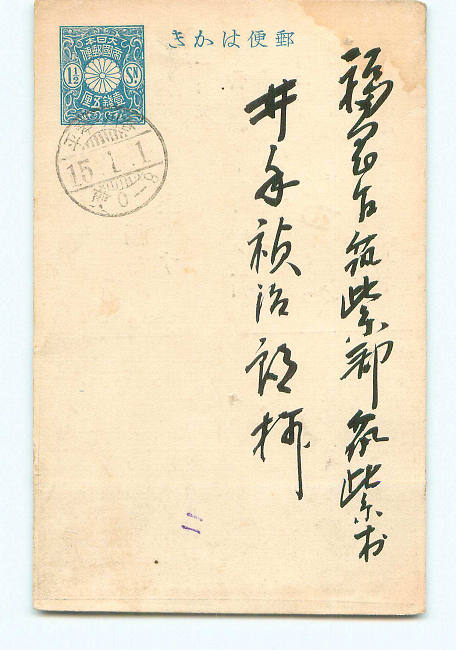 郵便はかき
大日本
帝國郵便
1½ Sn
壹錢五厘
15.1.1
前0-8
福岡縣筑紫郡筑紫村
井手禎治郎様
二